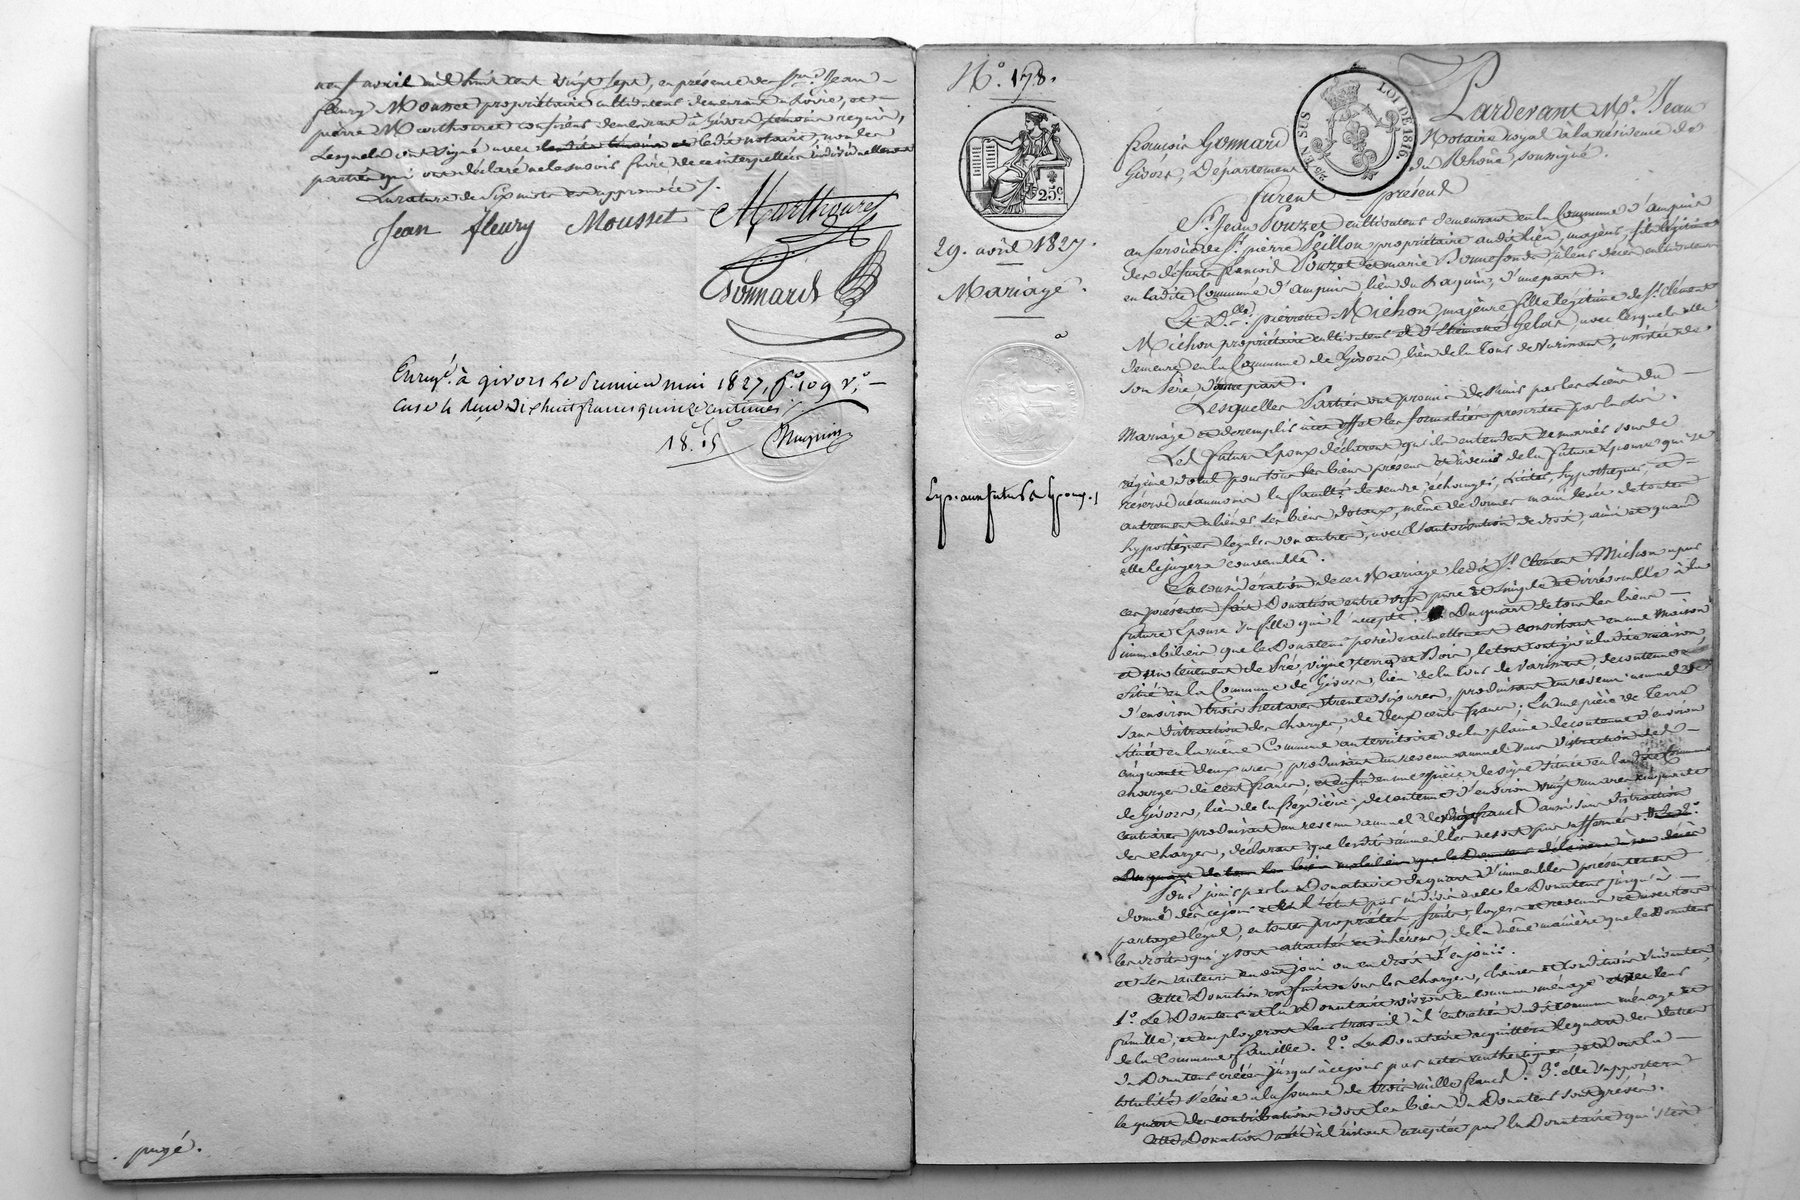 neuf avril mil huit cent vingt sept, en présence de Srs. Jean
fleury Mousset propriétaire cultivateur demeurant à Loire, et
pierre Marthouret demeurant à Givors témoins requis,
Lesquels ont signé avec ledit notaire, non les
parties qui ont déclaré ne le savoir faire, de ce interpellées individuellement
Rature de six mots approuvée.
Jean fleury Mousset Marthouret
Gonnard
Enregé. à givors le premier mai 1827, fo. 109 vo.
case 4 Reçu dixhuit francs quinze centimes
18.15
payé.
No. 178.
25c.
29. avril 1827.
Mariage.
LOI DE 1816.
EN SUS
Pardevant Me. Jean
françois Gonnard Notaire royal à la résidence de
Givors, Département du Rhône soussigné.
furent présens
Sr. Jean Pouzet cultivateur demeurant en la Commune d'ampuis
au service de Sr. pierre Peillon propriétaire audit lieu, majeur, fils légitime
de défunts françois Pouzet et marie Bonnefond à leur décès cultivateurs
en ladite Commune d'ampuis lieu du, d'une part.
Et Dlle. pierrette Michon, majeure fille légitime de Sr. Clément
Michon propriétaire cultivateur et d'Etiennette Gelas, avec lesquels elle
demeure en la Commune de Givors, lieu de la Tour de Varissant, assistée de
son Père d'autre part.
Lesquelles Parties ont promis de s'unir par les Liens du
Mariage et de remplir à cet effet les formalités prescrites par la Loi.
Les futurs Epoux déclarent qu'ils entendent se marier sous le
régime dotal pour tous les biens présens et à venir de la future Epouse qui se
réserve néanmoins la faculté de vendre, échanger, céder, hypothéquer, et
autrement aliéner ses biens dotaux, même de donner main levée de toutes
hypothèques légales ou autres, avec l'autorisation de droit, ainsi et quand
elle le jugera convenable.
En considération de ce Mariage ledit Sr. Clément Michon a par
ces présentes fait Donation entre vifs pure et simple et irrévocable à la
future Epouse sa fille qui l'accepte, Du quart de tous les biens
immobiliers que le Donateur possède actuellement consistant en une maison
et un tènement de Pré, vigne, terre et Bois, le tout contigu à ladite maison,
situé en la Commune de Givors, lieu de la Tour de Varissant, de contenue
d'environ trois hectares trente six ares, produisant un revenu annuel
sans distraction des charges, de deux cents francs. En une pièce de Terre
située en la même Commune au territoire de la plaine de contenue d'environ
cinquante deux ares, produisant un revenu annuel sans distraction de
charges de cent francs, et enfin en une pièce de vigne située en ladite Commune
de Givors, lieu de la, de contenue d'environ vingt un ares cinquante
centiares produisant un revenu annuel de francs aussi sans distraction
des charges, déclarant que lesdits immeubles ne sont pas affermés.
Du quart de tous les biens mobiliers que le Donateur délaissera à son décès
Pour jouir par la Donataire du quart d'immeubles présentement
donné dès ce jour par indivis avec le Donateur jusqu'à
partage légal, en toutes propriétés, fruits, loyers et revenus et avec tous
les droits qui y sont attachés et inhérens, de la même manière que le Donateur
et ses auteurs en ont joui ou eu droit d'en jouir.
Cette Donation est faite sous les charges, clauses et conditions suivantes,
1o. Le Donateur et la Donataire vivront en commun ménage avec leurs
famille, et employeront leur travail à l'entretien dudit commun ménage et
de la Commune famille. 2o. La Donataire acquittera le quart des dettes
du Donateur créées jusqu'à ce jour par actes authentiques et dont la
totalité s'élève à la somme de trois mille francs. 3o. elle supportera
le quart des contributions dont les biens du Donateur sont grevés.
Cette Donation a été à l'instant acceptée par la Donataire qui s'est